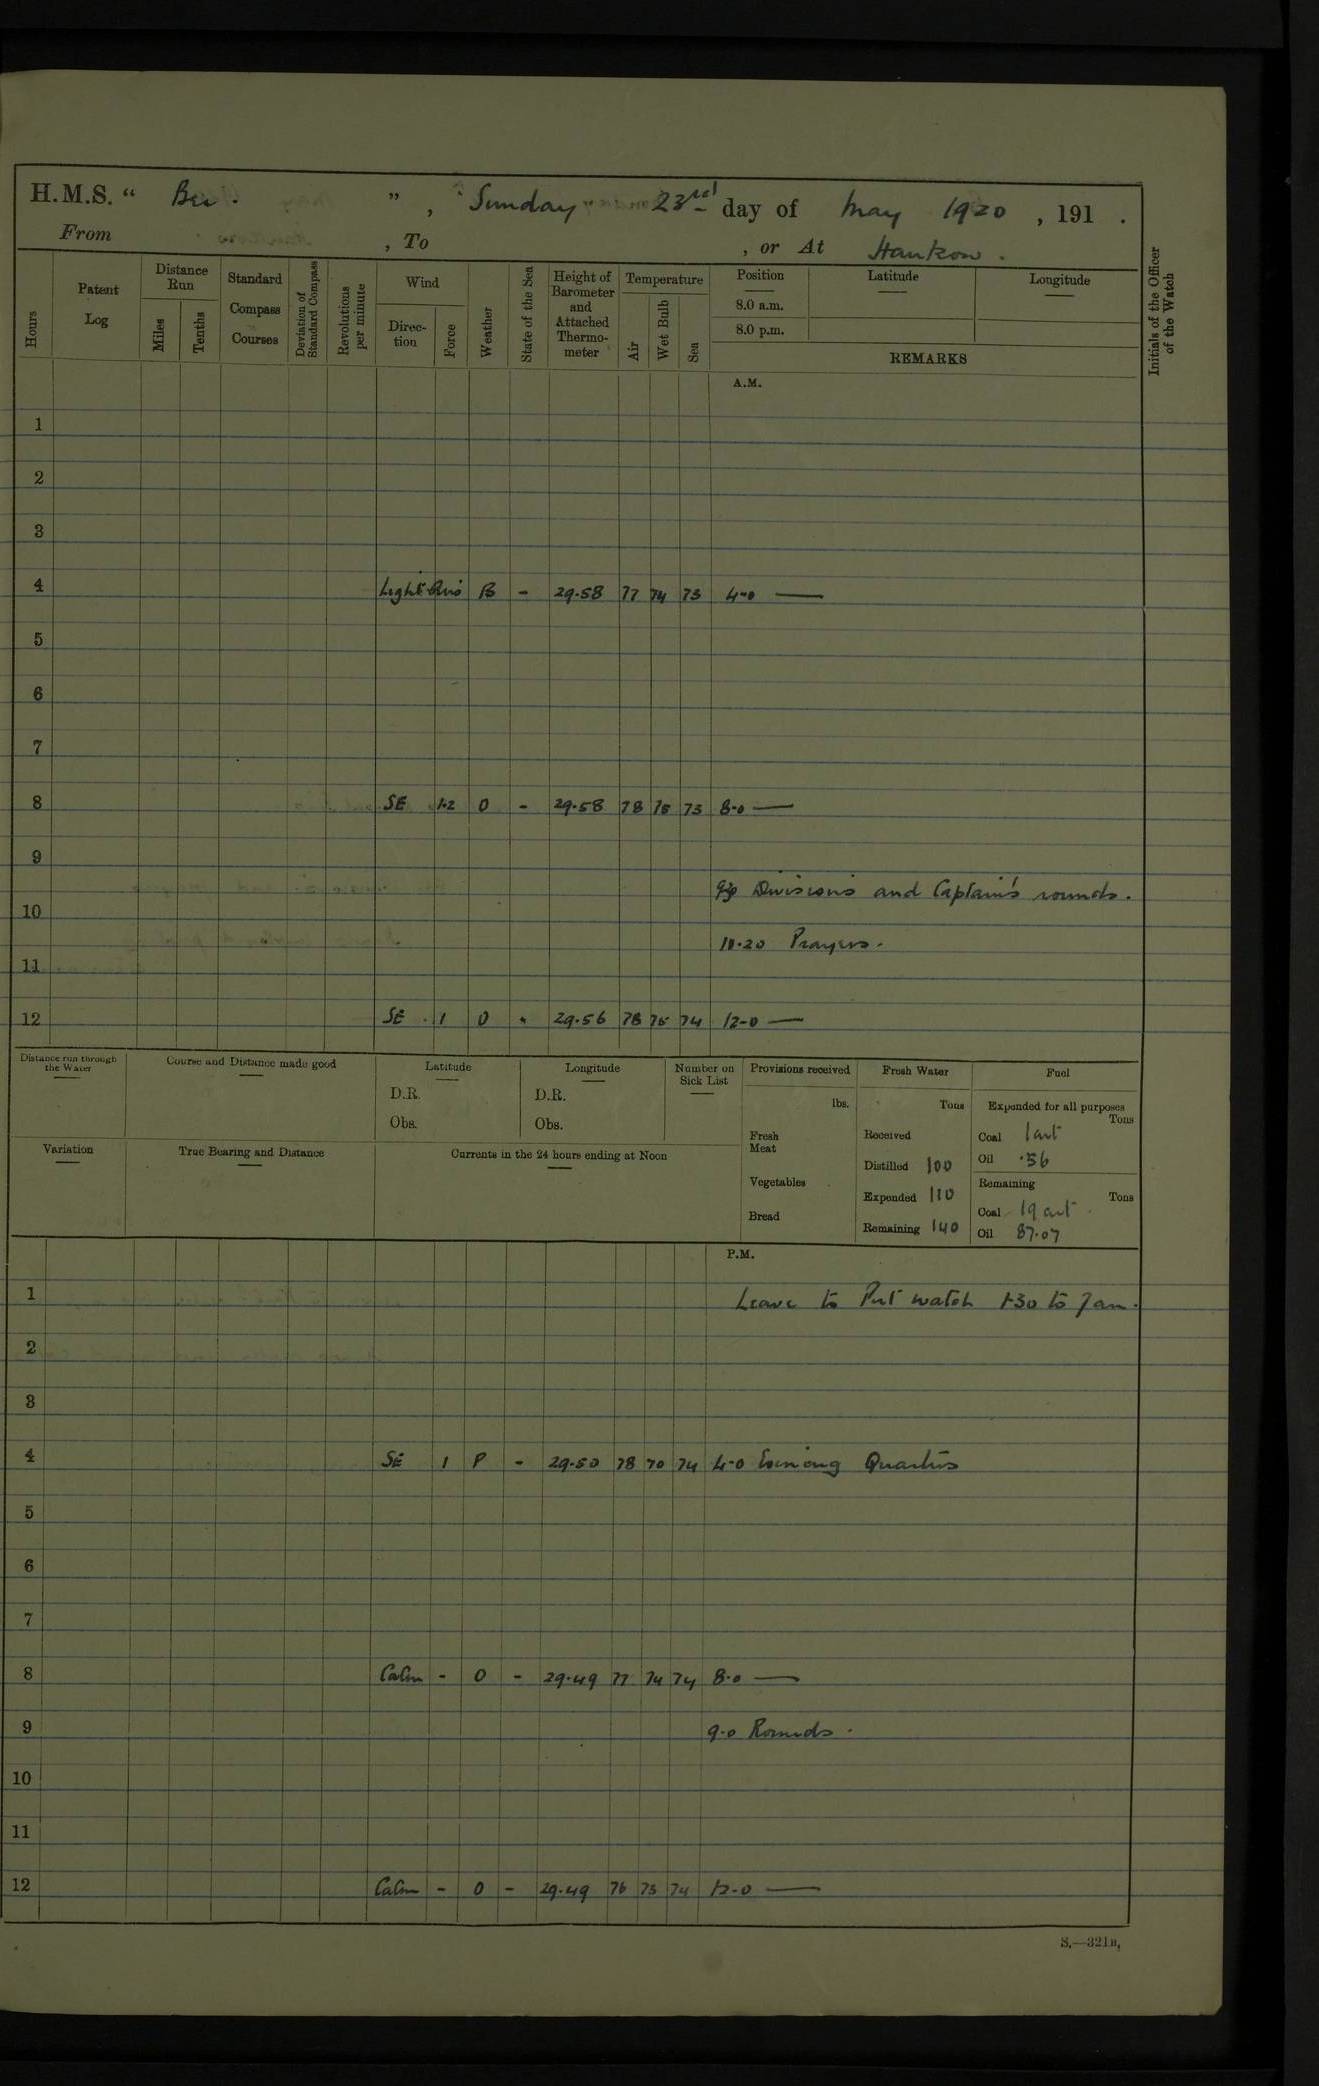 H.M.S. “ Bee . ” , Sunday 23rd day of May 1920 , 191 .
From , To , or At Hankow .
Hours
Patent Log
Distance Run
Miles
Tenths
Standard Compass Courses
Deviation of Standard Compass
Revolutions per minute
Wind
Direc-tion
Force
Weather
State of the Sea
Height of Barometer and Attached Thermo-meter
Temperature
Air
Wet Bulb
Sea
Position
8.0 a.m.
8.0 p.m.
Latitude
Longitude
REMARKS
Initials of the Officer of the Watch
A.M.
1
2
3
4 Light Airs B - 29.58 77 74 73 4-0 —
5
6
7
8 SE 1-2 O - 29.58 78 75 73 8-0 —
9
Divisions and Captain's rounds.
10
10.20 Prayers.
11
12 SE 1 O - 29.56 78 75 74 12-0 —
Distance run through the Water
Course and Distance made good
Latitude
D.R.
Obs.
Longitude
D.R.
Obs.
Number on Sick List
Provisions received
lbs.
Fresh Meat
Vegetables
Bread
Fresh Water
Tons
Received
Distilled 100
Expended 110
Remaining 140
Fuel
Expended for all purposes
Tons
Coal 1 cwt
Oil .56
Remaining
Tons
Coal 19 cwt
Oil 87.07
Variation
True Bearing and Distance
Currents in the 24 hours ending at Noon
P.M.
1 Leave to Port watch 1-30 to 7 am.
2
3
4 SE 1 P - 29.50 78 70 74 4-0 Evening Quarters
5
6
7
8 Calm - O - 29.49 77 74 74 8-0 —
9 9-0 Rounds.
10
11
12 Calm - O - 29.49 76 73 74 12-0 —
S.—321B,